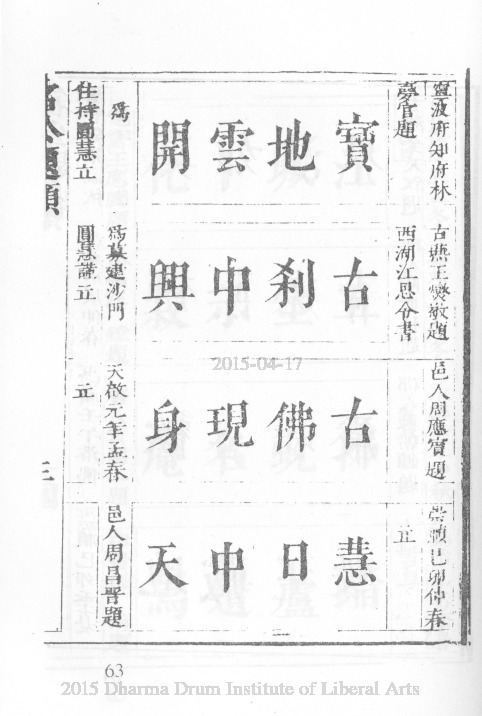 寧波府知府林
夢官題
寶地雲開
爲
住持圓慧立
古燕王燮敬題
西湖江思令書
古刹中興
爲募建沙門
圓慧 立
邑人周應賓題
古佛現身
天啟元年孟春
立
崇禎己卯仲春
立
慧日中天
邑人周昌晉題
題額
三
2015-04-17
63
2015 Dharma Drum Institute of Liberal Arts